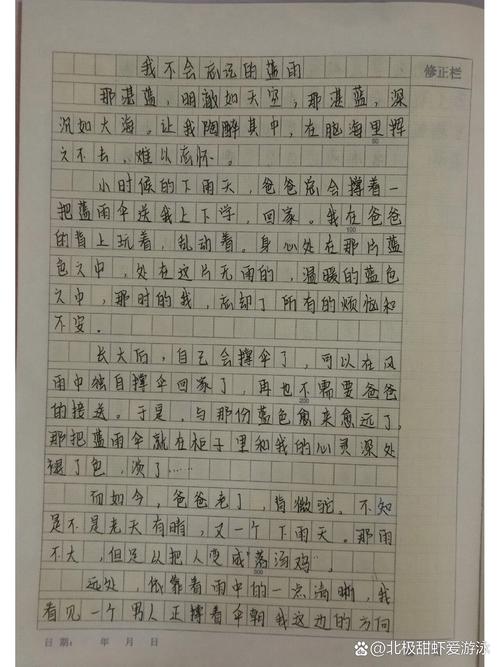 我不会忘记的蓝雨
修正栏
那湛蓝，明澈如天空，那湛蓝，深
沉如大海。让我陶醉其中，在脑海里挥
50
之不去，难以忘怀。
小时候的下雨天，爸爸总会撑着一
把蓝雨伞送我上下学，回家。我在爸爸
100
的背上玩着，乱动着。身心处在那片蓝
色之中，处在这片无雨的，温暖的蓝色
之中，那时的我，忘却了所有的烦恼和
不安。
长大后，自己会撑伞了，可以在风
雨中独自撑伞回家了，再也不需要爸爸
200
的接送。于是，与那份蓝色愈来愈远了，
那把蓝雨伞就在柜子里和我的心灵深处
褪了色，淡了……
而如今，爸爸老了，背微驼。不知
是不是老天有晴，又一个下雨天。那雨
不大，但足以把人变成"落汤鸡"。
300
远处，依靠着雨中的一点清晰，我
看见一个男人正撑着伞朝我这边的方向
日期： 年 月 日
@北极甜虾爱游泳